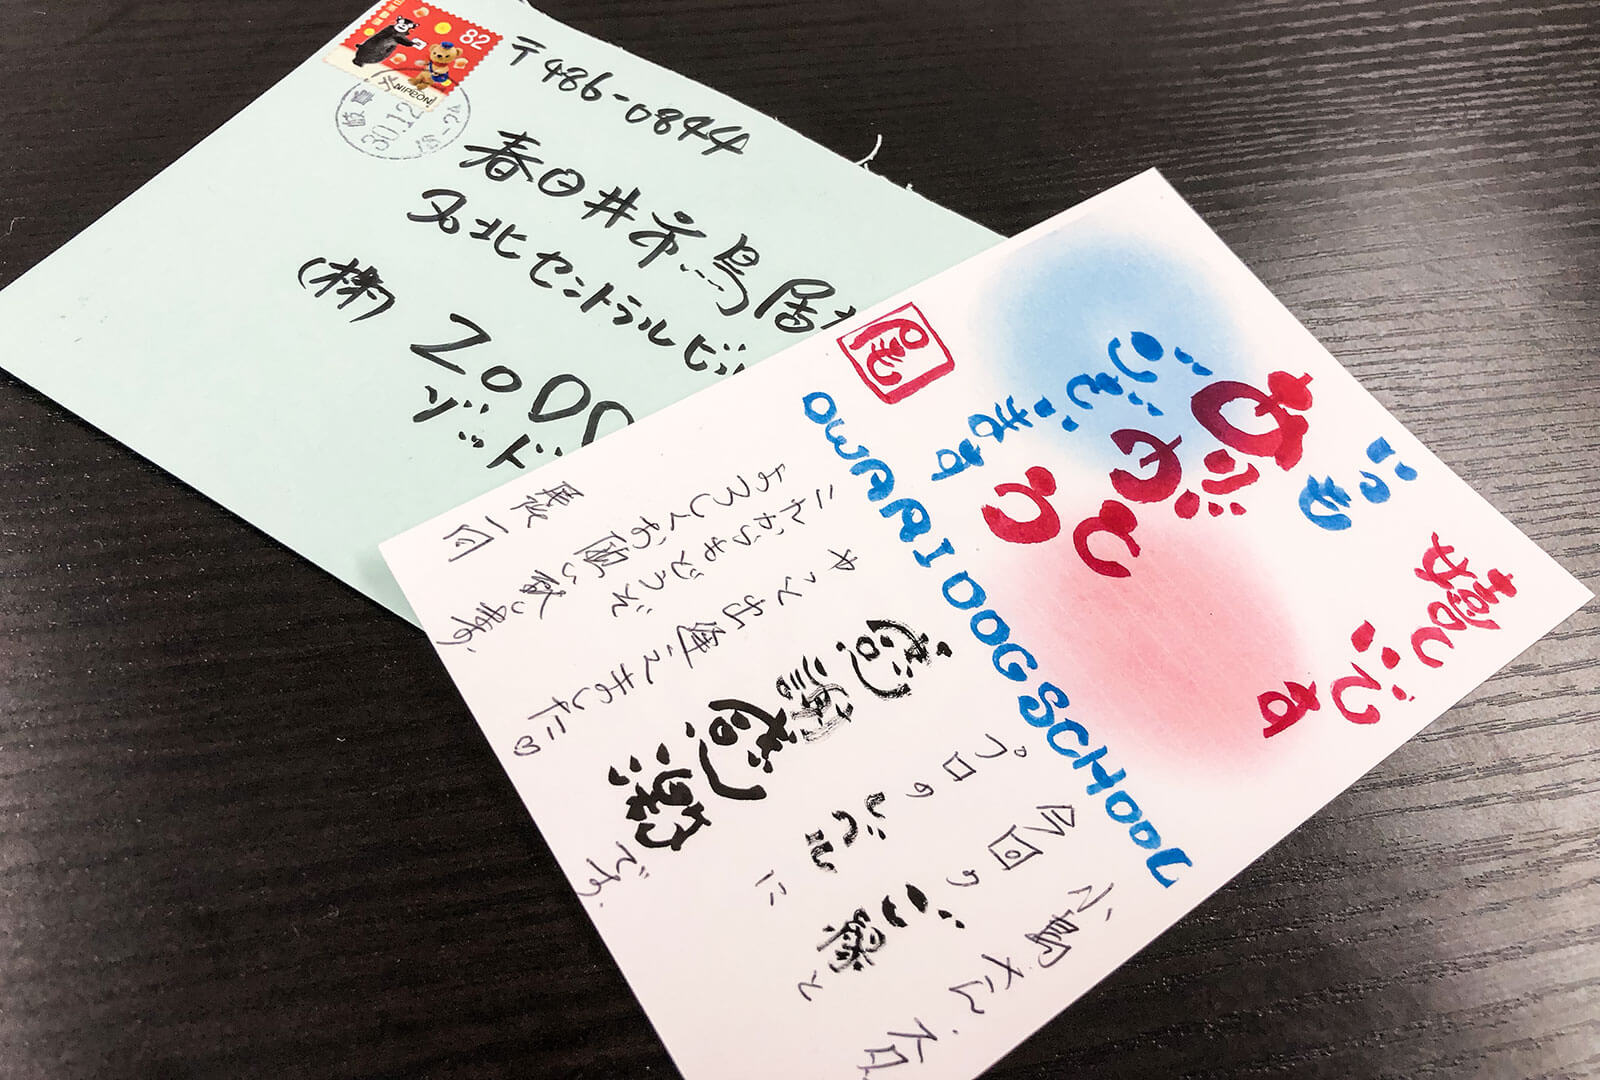 82
NIPPON
30.12
〒486-0844
春日井市鳥居
名北セントラルビ
(株) ZOO
ゾッド
いつも
嬉しいです
ありがとう
ございます
尾
OWARI DOG SCHOOL
小島さん、石
今回のご縁と
プロの
に
感謝
感激
です。
やっと出逢えました♡
これからもどうぞ
よろしくお願い致します。
一同